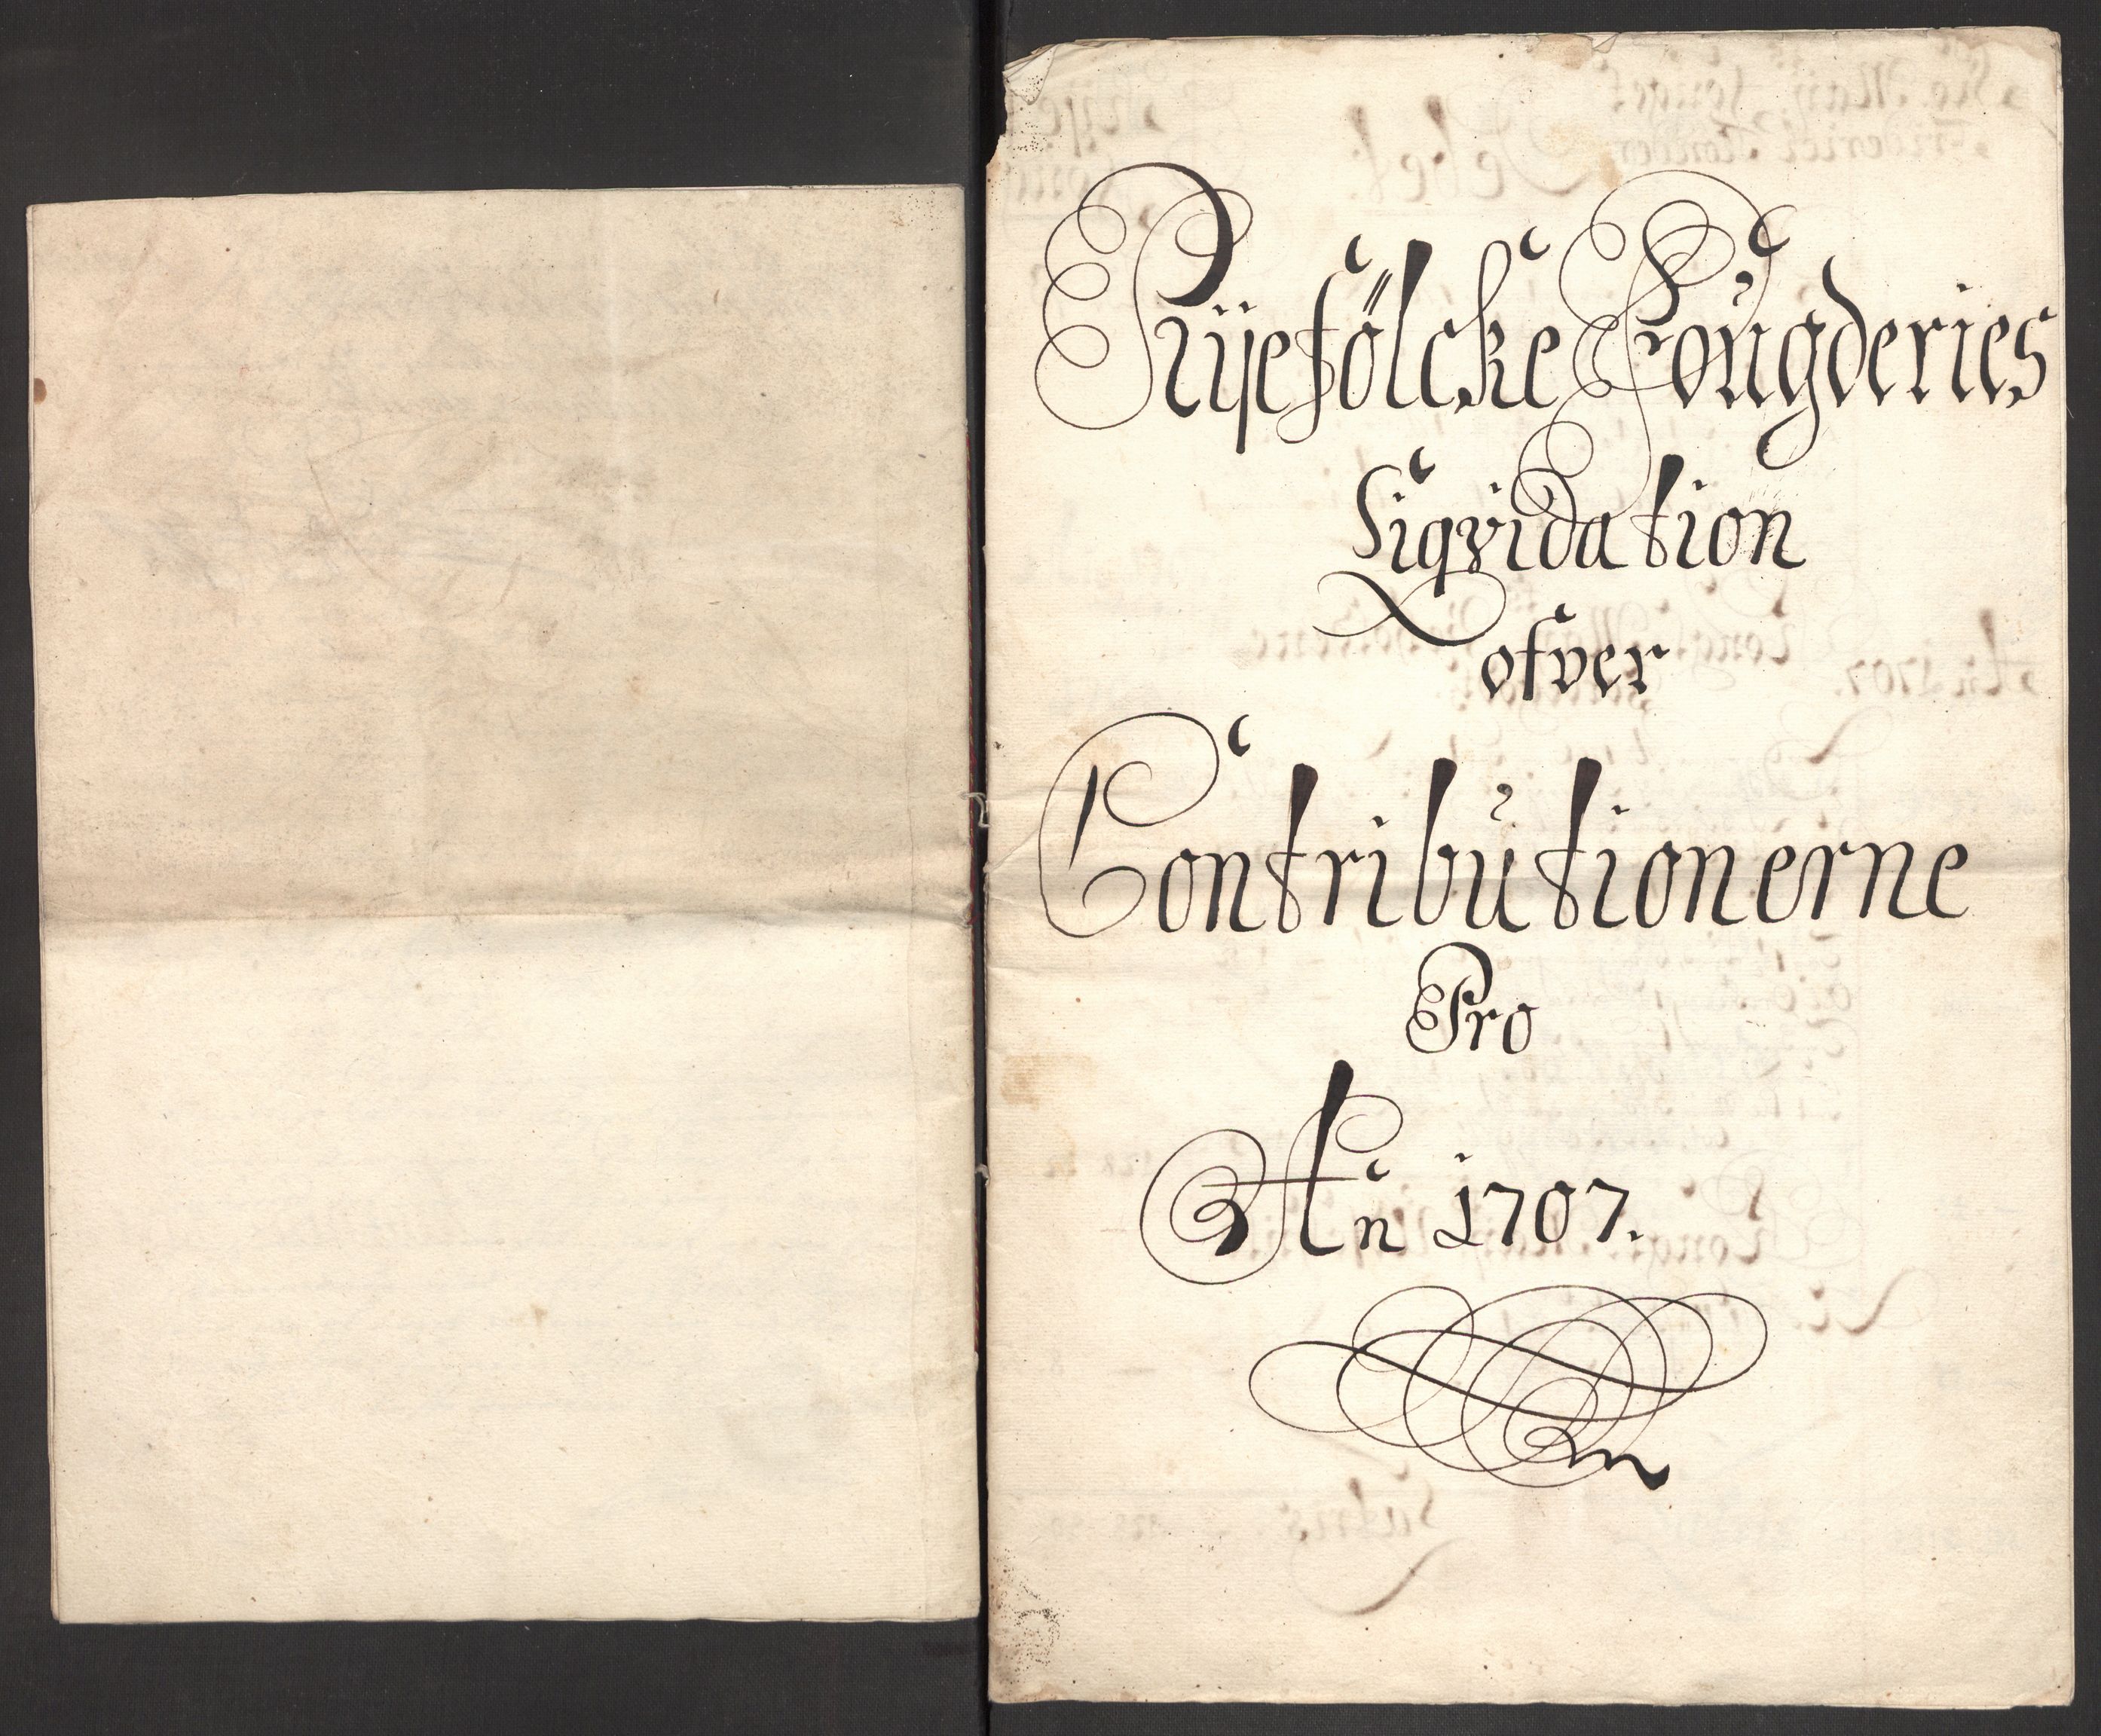 Ryefölcke Fougderies
Liqvidation
ofver
Contributionerne
Pro
An 1707.